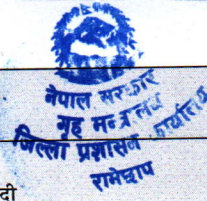 नेपाल सरकार
गृह मन्त्रालय
जिल्ला प्रशासन कार्यालय
रामेछाप
दी